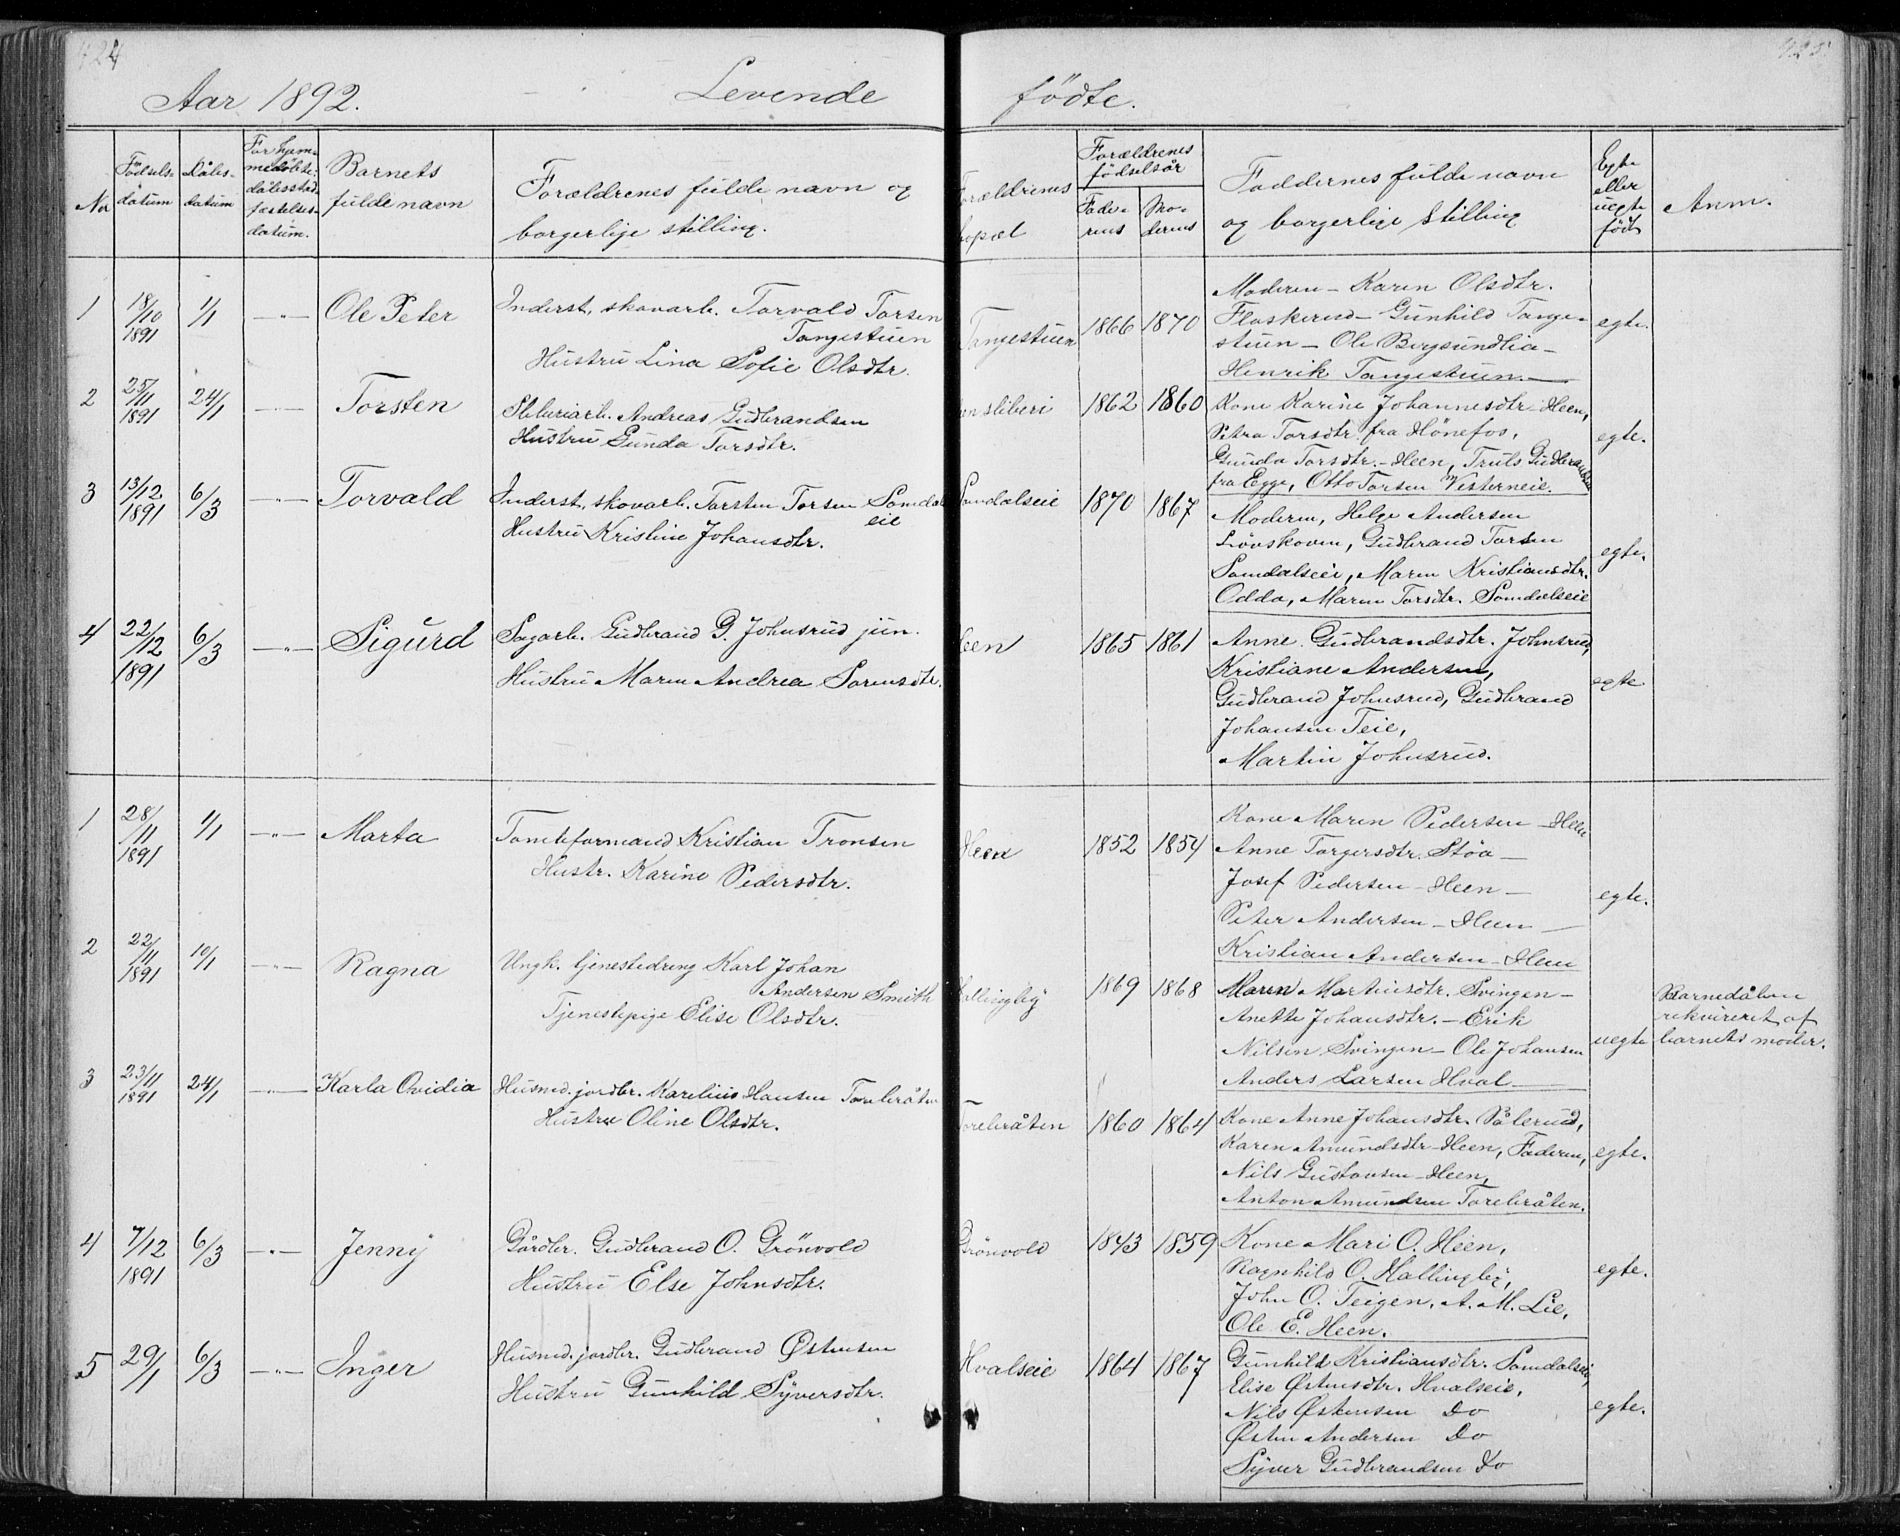 424
425
Aar 1892.
Levende
fødte.
No
Fødsels-
datum
Dåbs-
datum
For hjem-
medøbte:
dåbsstad-
fæstelses-
datum.
Barnets
fulde navn
Forældrenes fulde navn og
borgerlige stilling.
Forældrenes
bopæl
Forældrenes
fødselsår
Fade-
rens
Mo-
derens
Faddernes fulde navn
og borgerlige stilling
Egte
eller
uegte
født
Anm.
1
18/10
1891
1/1
—"—
Ole Peter
Inderst, skovarb. Torvald Torsen
Tangestuen
Hustru Lina Sofie Olsdtr.
Tangestuen
1866
1870
Moderen - Karen Olsdtr.
Flaskerud - Gunhild Tange-
stuen - Ole Bergsundlia -
Henrik Tangestuen. -
egte.
2
25/11
1891
24/1
—"—
Torsten
Sliberiarb. Andreas Gudbrandsen
Hustru Gunda Torsdtr.
sliberi
1862
1860
Kone Karine Johannesdtr. Heen,
Petra Torsdtr. fra Hönefos,
Gunda Torsdtr. - Heen, Truls Gudbrandsen
fra Egge, Otto Torsen Vesterneie.
egte.
3
13/12
1891
6/3
—"—
Torvald
Inderst, skovarb. Torsten Torsen Somdals
eie
Hustru Kristine Johansdtr.
Somdalseie
1870
1867
Moderen, Helge Andersen
Lövskoven, Gudbrand Torsen
Somdalseie, Maren Kristiansdtr.
Odda, Maren Torsdtr. Somdalseie
egte.
4
22/12
1891
6/3
—"—
Sigurd
Sagarb. Gudbrand G. Johnsrud jun.
Hustru Maren Andrea Sorensdtr.
Heen
1865
1861
Anne Gudbrandsdtr. Johnsrud,
Kristiane Andersen,
Gudbrand Johnsrud, Gudbrand
Johansen Teie,
Martin Johnsrud.
egte
1
28/11
1891
1/1
—"—
Marta
Tomteformand Kristian Tronsen
Hustr. Karine Pedersdtr.
Heen
1852
1854
Kone Maren Pedersen - Heen
Anne Torgersdtr. Støa -
Josef Pedersen - Heen -
Peter Andersen - Heen -
Kristian Andersen - Heen
egte.
2
22/11
1891
10/1
—"—
Ragna
Ungk. tjenestedreng Karl Johan
Andersen Smith
Tjenestepige Elise Olsdtr.
Hallingby
1869
1868
Maren Martinsdtr. Svingen -
Anette Johansdtr. - Erik
Nilsen Svingen - Ole Johansen
Anders Larsen Hval -
uegte
Barnedåben
rekvireret af
barnets moder.
3
23/11
1891
24/1
—"—
Karla Ovidia
Husmd. jordbr. Karelius Hansen Torebråten
Hustru Oline Olsdtr.
Torebråten
1860
1864
Kone Anne Johansdtr. Pålerud,
Karen Amundsdtr. Heen, Faderen,
Nils Gustavsen - Heen,
Anton Amundsen Torebråten.
egte.
4
7/12
1891
6/3
—"—
Jenny
Gårdbr. Gudbrand O. Grönvold
Hustru Else Johnsdtr.
Grönvold
1843
1859
Kone Mari O. Heen,
Ragnhild O. Hallingby,
John O. Teigen, A. M. Lie,
Ole E. Heen.
egte.
5
29/1
6/3
—"—
Inger
Husmd. jordbr. Gudbrand Østensen
Hustru Gunhild Syversdtr.
Hvalseie
1864
1867
Gunhild Kristiansdtr. Somdalseie,
Elise Østensdtr. Hvalseie,
Nils Østensen Do
Østen Andersen Do
Syver Gudbrandsen Do
egte.